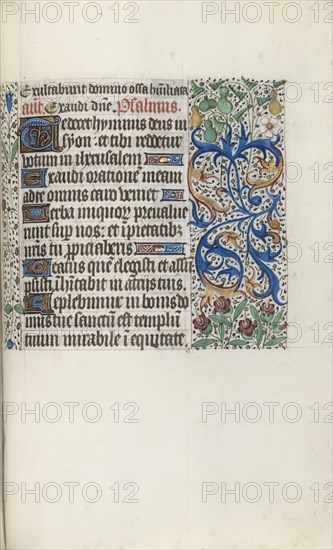 Exultabunt domino ossa humiliata
ant. Exaudi dne. Psalmus.
Te decet hymnus deus in
syon : et tibi reddetur
votum in iherusalem
Exaudi orationem meam
ad te omnis caro veniet
Verba iniquor preualue
runt sup nos : et impietatib
nris tu ppiciaberis
Beatus quem elegisti et assū
psisti īhabitabit in atrijs tuis
Replebimur in bonis do
mus tue sanctum est templū
tuum mirabile ī equitate
PHOTO 12